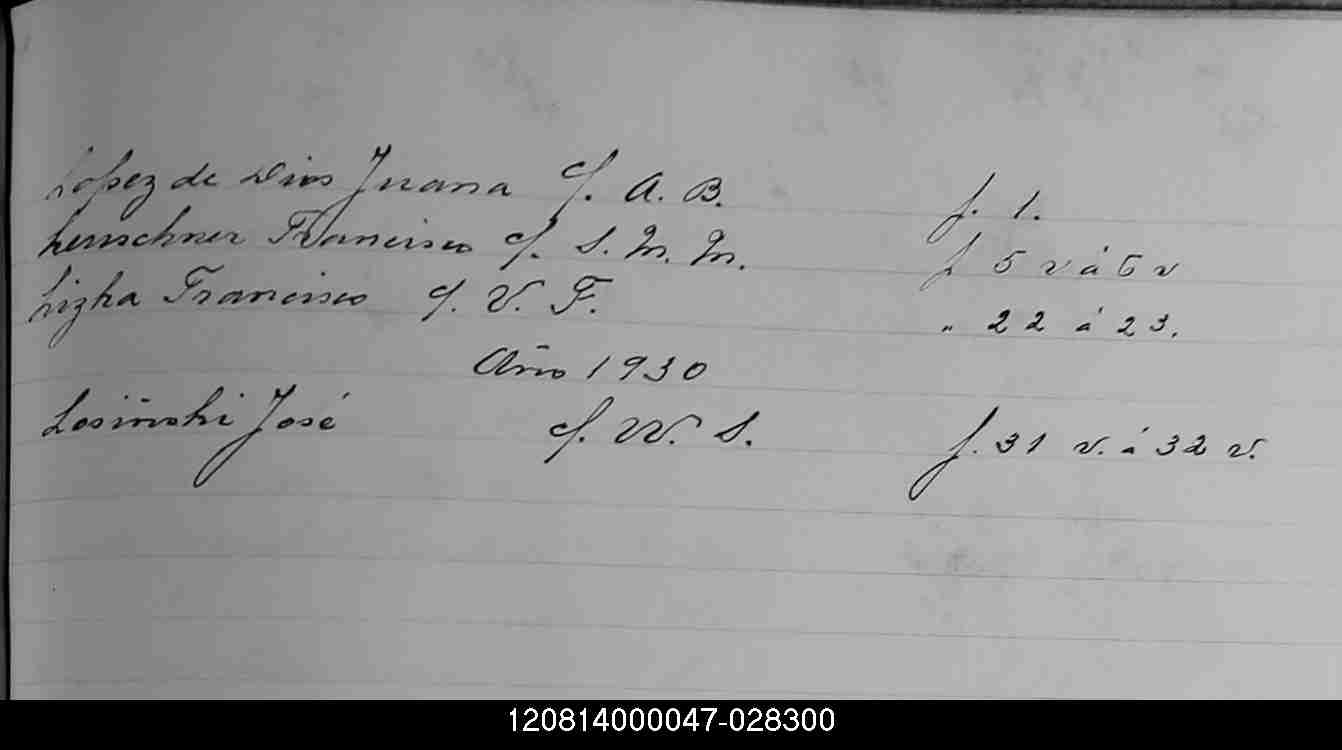 Lopez de Dios Juana c/. A. B. f. 1.
Lerschner Francisco c/. S. M. M. f. 5 v á 6 v
Lizka Francisco c/. V. F. " 22 á 23.
Año 1930
Losiñski José c/. W. S. f. 31 v. á 32 v.
120814000047-028300